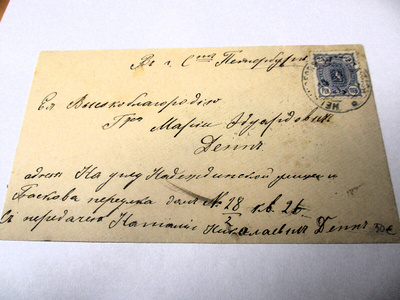 Въ г. С. Петербургъ
Ея Высокоблагородію
Гжѣ Маріи Эдуардовнѣ
Деннъ
адресъ На углу Надеждинской улицы и
Баскова переулка домъ № 28/2 кв. 26
Съ передачею Наталіи Николаевнѣ Деннъ
30€